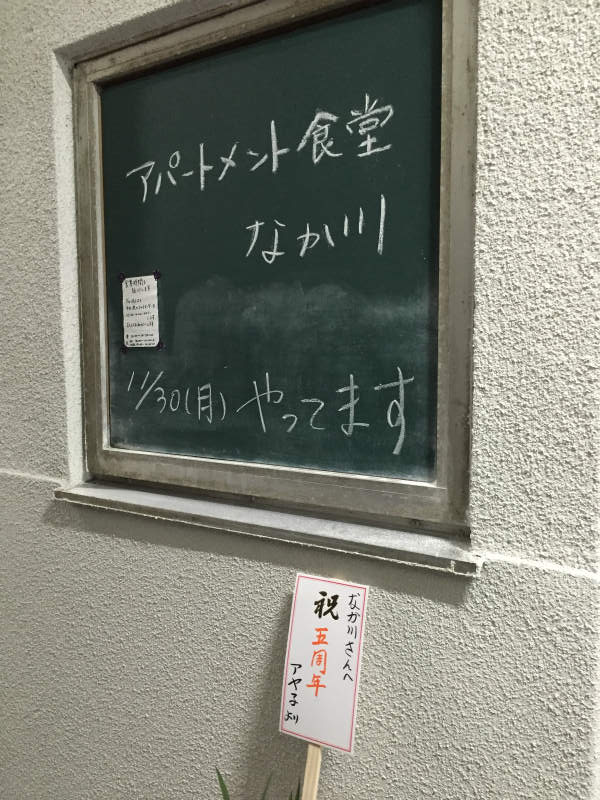 アパートメント食堂
なか川
11/30(月)やってます
なか川さんへ
祝五周年
アヤ子より